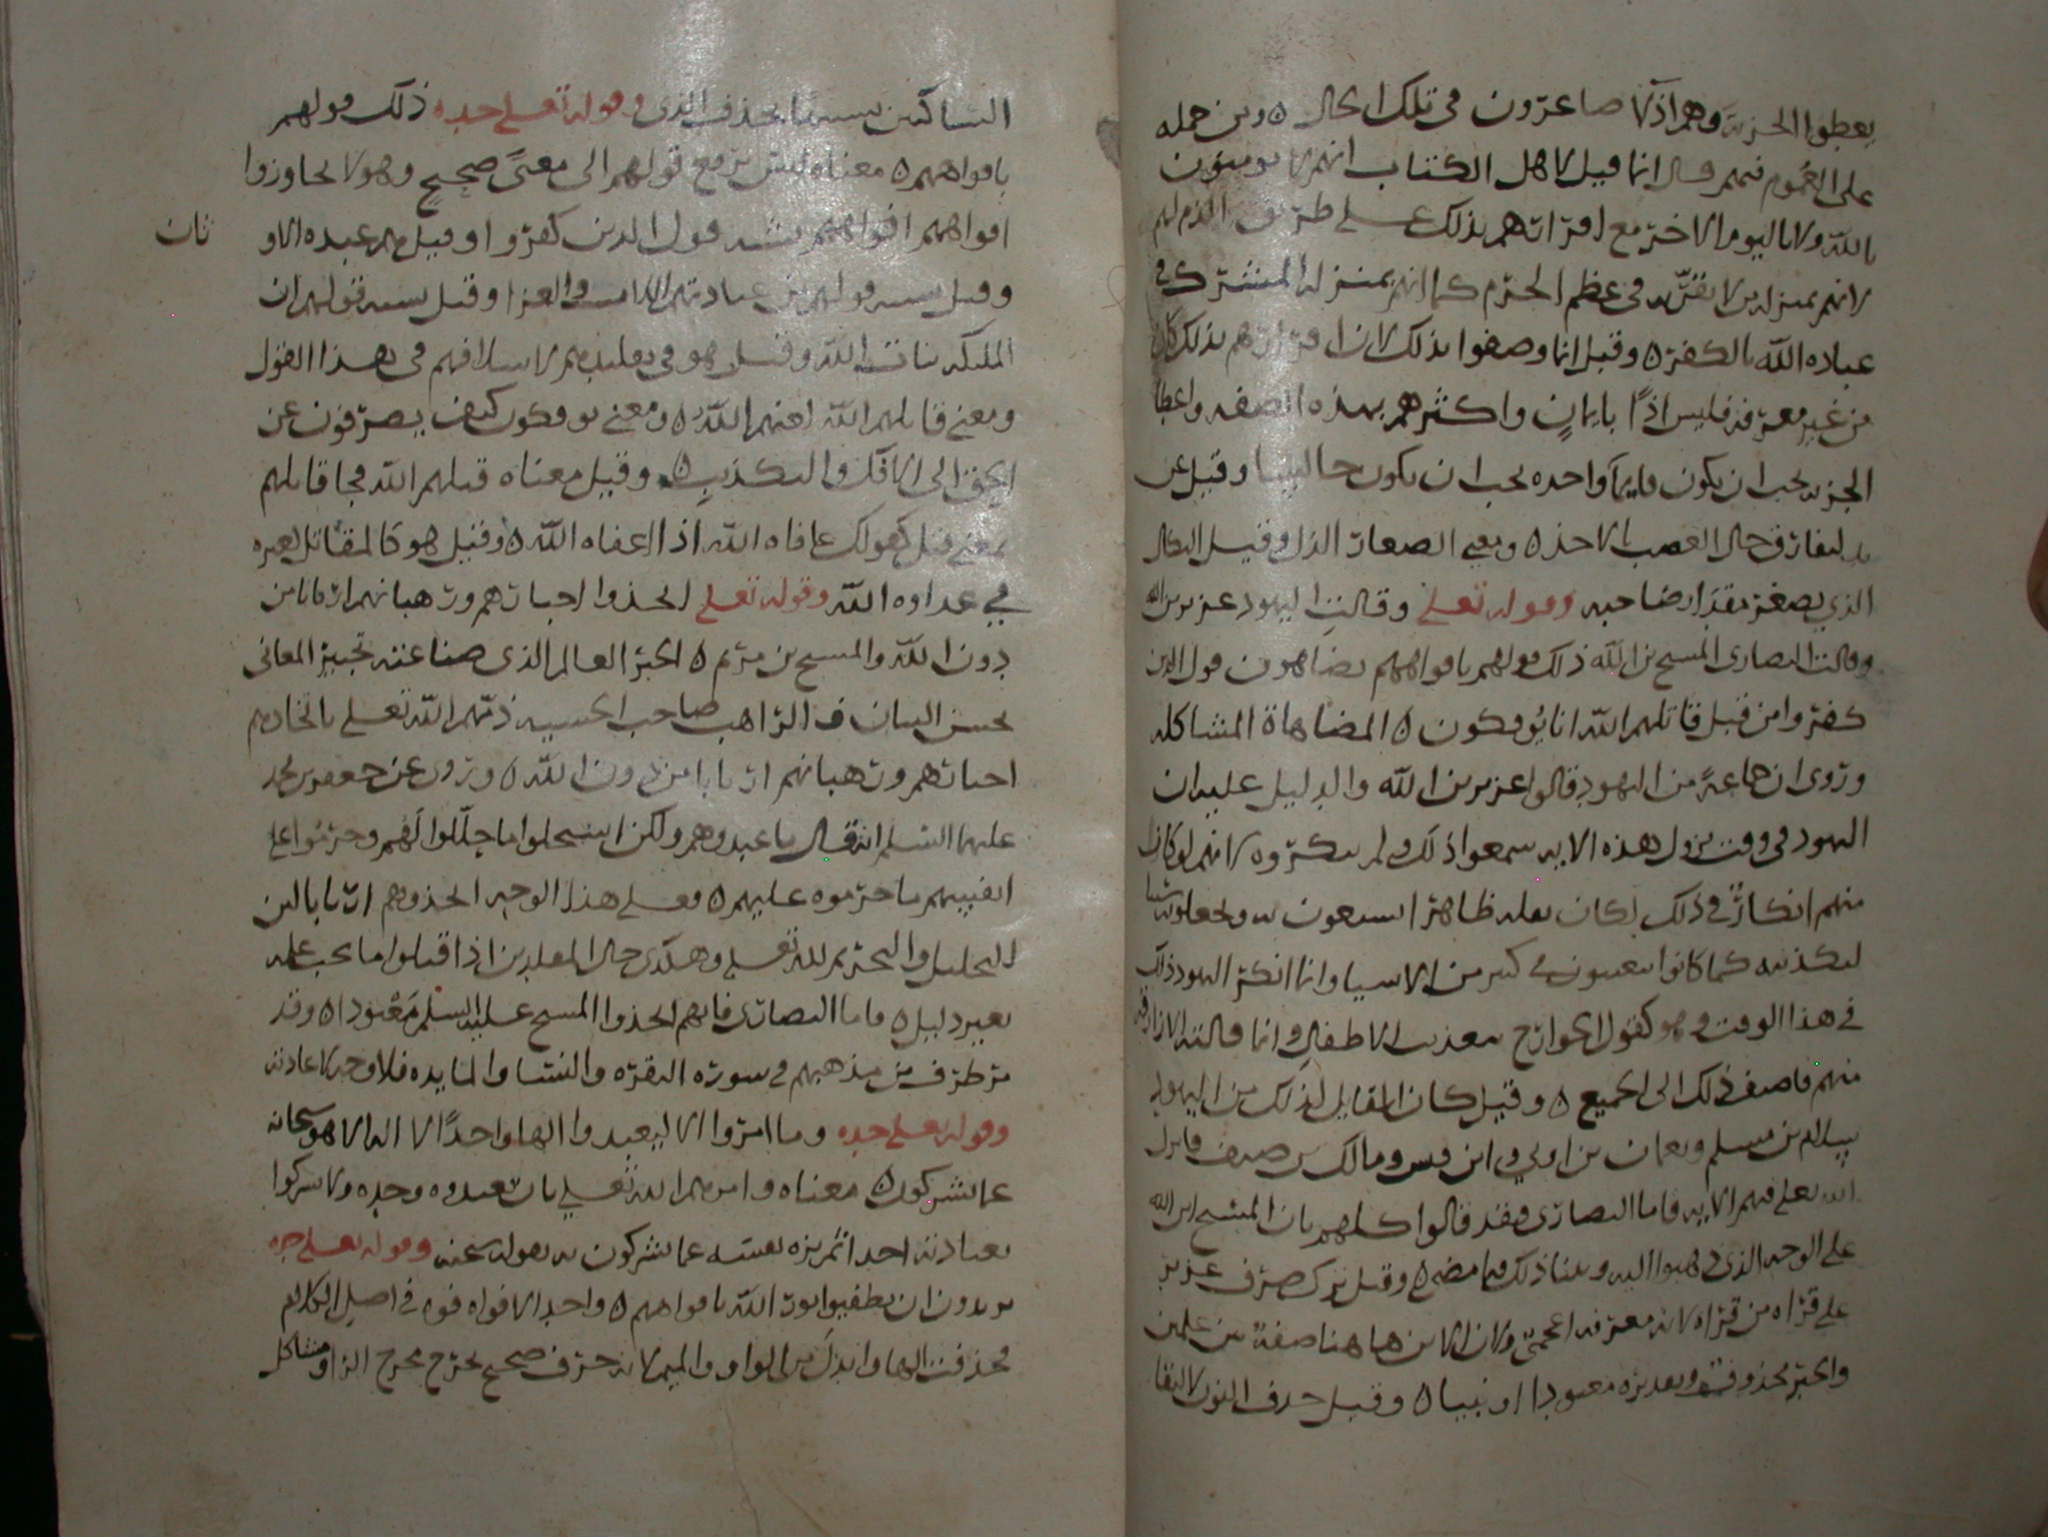 يعطوا الجزية وهم اذلا صاغرون في تلك الحال ومن حمله
على العموم فيهم قال انما قيل لاهل الكتاب انهم لا يومنون
بالله ولا باليوم الاخر مع اقرارهم بذلك على طريق الذم لهم
لانهم بمنزله من لا يقر به في عظم الجرم كما انهم بمنزلة المشرك في
عباده الله بالكفر وقيل انما وصفوا بذلك لان اقرارهم بذلك كان
من غير معرفه فليس اذا بايمان واكثرهم بهذه الصفه واعطا
الجزيه يجب ان يكون قايما واحده يجب ان يكون جالسا وقيل عن
يد ليفارق حال الغصب الاخذ ومعنى الصغار الذل وقيل النكال
الذي يصغر مقدار صاحبه وقوله تعلى وقالت اليهود عزير بن الله
وقالت النصارى المسيح بن الله ذلك قولهم بافواههم يضاهون قول الذين
كفروا من قبل قاتلهم الله انا يؤفكون المضاهاة المشاكله
وروى ان جماعة من اليهود قالوا عزير بن الله والدليل عليه ان
اليهود في وقت نزول هذه الايه سمعوا ذلك ولم ينكروه لانهم لو كان
منهم انكار في ذلك لكان نقله ظاهرا يسعون به ويجعلونه سببا
لتكذيبه كما كانوا يتعنتون في كثير من الاشيا وانما انكر اليهود ذلك
في هذا الوقت وهو كقول الخوارج بتعذيب الاطفال وانما قالته الازارقه
منهم فاضيف ذلك الى الجميع وقيل كان القايل لذلك من اليهود
سلام بن مسلم ونعمان بن اوفى وابن قيس ومالك بن صيف فانزل
الله تعلى فيهم الايه فاما النصارى فقد قالوا كلهم بان المسيح ابن الله
على الوجه الذي ذهبوا اليه وبينا ذلك فيما مضى وقيل ترك صرف عزير
على قراه من قراه لانه معرفه اعجمي ولان الابن هاهنا صفة بين علمين
والخبر محذوف وتقديره معبودنا او نبينا وقيل حذف النون لالتقا
الساكنين تشبيها بحذف الذي وقوله تعلى جده ذلك قولهم
بافواههم معناه ليس يرجع قولهم الى معنى صحيح وهو لا يجاوزوا
افواههم افواههم يشبه قول الذين كفروا وقيل هم عبده الاو
ثان
وقيل يشبه قولهم من عبادتهم اللات والعزا وقيل يشبه قولهم ان
الملئكه بنات الله وقيل هو في تقليدهم لاسلافهم في هذا القول
ومعنى قاتلهم الله لعنهم الله ومعنى يوفكون كيف يصرفون عن
الحق الى الافك والكذب وقيل معناه قتلهم الله فجا قاتلهم
بمعنى قتل كقولك عافاه الله اذا اعفاه الله وقيل هو كالمقاتل لغيره
في عداوه الله وقوله تعلى اتخذوا احبارهم ورهبانهم اربابا من
دون الله والمسيح بن مريم الحبر العالم الذي صناعته تحبير المعاني
بحسن البيان و الراهب صاحب الخشيه ذمهم الله تعلى باتخاذهم
احبارهم ورهبانهم اربابا من دون الله وروى عن جعفر بن محمد
عليهما السلم انه قال ما عبدوهم ولكن استحلوا ما حللوا لهم وحرموا على
انفسهم ما حرموه عليهم وعلى هذا الوجه اتخذوهم اربابا لان
التحليل والتحريم لله تعلى وهكذى حال المقلدين اذا قبلوا ما يجب عليه
بغير دليل فاما النصارى فانهم اتخذوا المسيح عليه السلم معبودا وقد
مر طرف من مذهبهم في سورة البقره والنسا والمايده فلا وجه لاعادته
وقوله تعلى جده وما امروا الا ليعبدوا الها واحدا لا اله الا هو سبحانه
عما يشركون معناه وامرهم الله تعلى بان تعبدوه وحده ولا يشركوا
بعبادته احدا ثم نزه نفسه عما يشركون به بقوله سبحنه وقوله تعلى جده
يريدون ان يطفيوا نور الله بافواههم واحد الافواه فوه في اصل الكلام
فحذفت الها وابدل من الواو الميم لانه حرف صحيح يخرج مخرج الواو مشاكل